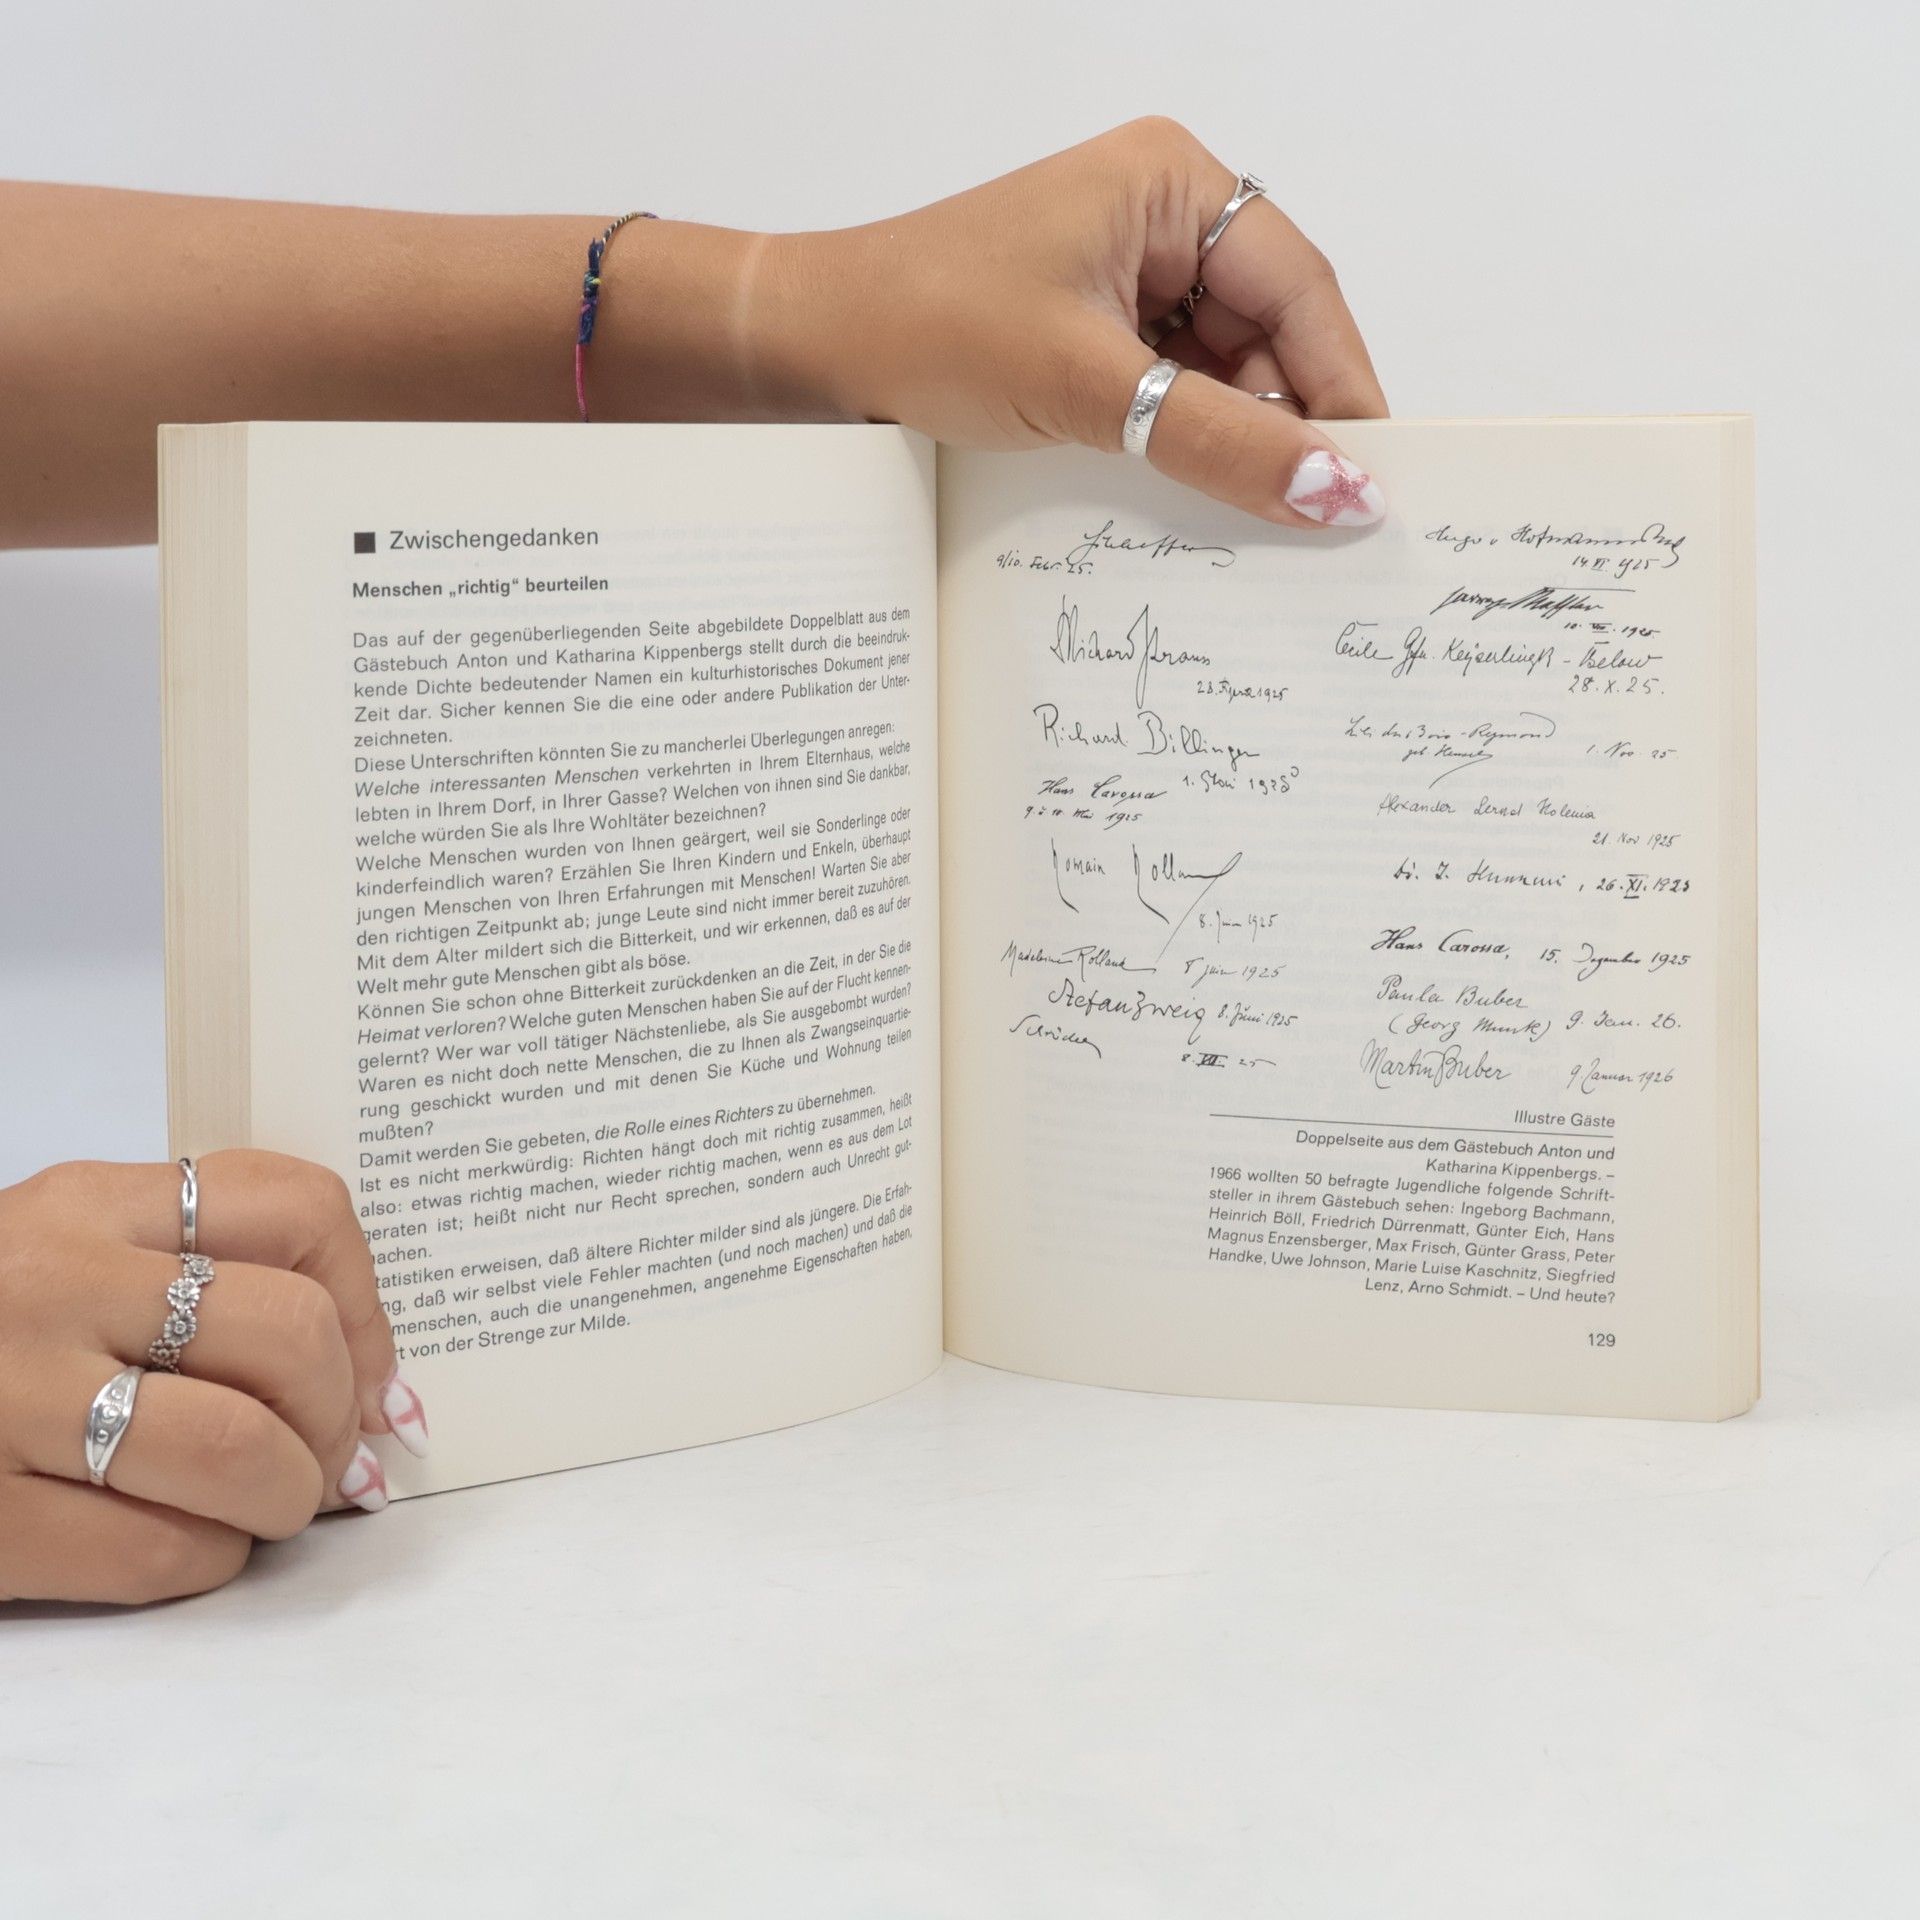 ■ Zwischengedanken
Menschen „richtig“ beurteilen
Das auf der gegenüberliegenden Seite abgebildete Doppelblatt aus dem
Gästebuch Anton und Katharina Kippenbergs stellt durch die beeindruk-
kende Dichte bedeutender Namen ein kulturhistorisches Dokument jener
Zeit dar. Sicher kennen Sie die eine oder andere Publikation der Unter-
zeichneten.
Diese Unterschriften könnten Sie zu mancherlei Überlegungen anregen:
Welche interessanten Menschen verkehrten in Ihrem Elternhaus, welche
lebten in Ihrem Dorf, in Ihrer Gasse? Welchen von ihnen sind Sie dankbar,
welche würden Sie als Ihre Wohltäter bezeichnen?
Welche Menschen wurden von Ihnen geärgert, weil sie Sonderlinge oder
kinderfeindlich waren? Erzählen Sie Ihren Kindern und Enkeln, überhaupt
jungen Menschen von Ihren Erfahrungen mit Menschen! Warten Sie aber
den richtigen Zeitpunkt ab; junge Leute sind nicht immer bereit zuzuhören.
Mit dem Alter mildert sich die Bitterkeit, und wir erkennen, daß es auf der
Welt mehr gute Menschen gibt als böse.
Können Sie schon ohne Bitterkeit zurückdenken an die Zeit, in der Sie die
Heimat verloren? Welche guten Menschen haben Sie auf der Flucht kennen-
gelernt? Wer war voll tätiger Nächstenliebe, als Sie ausgebombt wurden?
Waren es nicht doch nette Menschen, die zu Ihnen als Zwangseinquartie-
rung geschickt wurden und mit denen Sie Küche und Wohnung teilen
mußten?
Damit werden Sie gebeten, die Rolle eines Richters zu übernehmen.
Ist es nicht merkwürdig: Richten hängt doch mit richtig zusammen, heißt
also: etwas richtig machen, wieder richtig machen, wenn es aus dem Lot
geraten ist; heißt nicht nur Recht sprechen, sondern auch Unrecht gut-
machen.
tatistiken erweisen, daß ältere Richter milder sind als jüngere. Die Erfah-
ng, daß wir selbst viele Fehler machten (und noch machen) und daß die
menschen, auch die unangenehmen, angenehme Eigenschaften haben,
rt von der Strenge zur Milde.
9/10. Febr. 25.
Richard Strauss
1925
Richard Billinger
1. 
Hans Carossa
1925
Romain Rolland
8. Juin 1925
Madeleine Rolland 8 juin 1925
Stefan Zweig 8. Juni 1925
8. VII. 25
Hugo v Hofmannsthal
14 VI. 1925
10. VII. 1925
Cecile Gfn. Keyserlingk - Below
28. X. 25.
1. Nov. 25
Alexander Lernet Holenia
21. Nov 1925
26. XI. 1925
Hans Carossa, 15. Dezember 1925
Paula Buber
(Georg Munk) 9. Jan. 26.
Martin Buber 9 Januar 1926
Illustre Gäste
Doppelseite aus dem Gästebuch Anton und
Katharina Kippenbergs. –
1966 wollten 50 befragte Jugendliche folgende Schrift-
steller in ihrem Gästebuch sehen: Ingeborg Bachmann,
Heinrich Böll, Friedrich Dürrenmatt, Günter Eich, Hans
Magnus Enzensberger, Max Frisch, Günter Grass, Peter
Handke, Uwe Johnson, Marie Luise Kaschnitz, Siegfried
Lenz, Arno Schmidt. – Und heute?
129